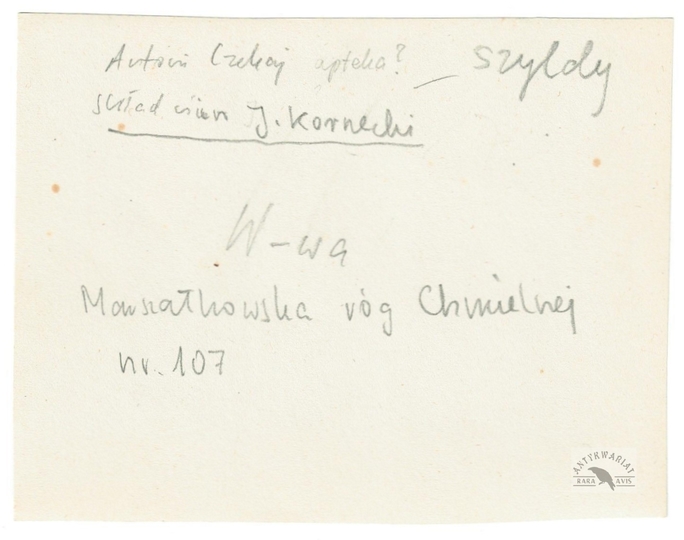 Antoni Czekaj apteka? — szyldy
skład win J. Kornecki
W-wa
Marszałkowska róg Chmielnej
nr. 107
ANTYKWARIAT
RARA AVIS